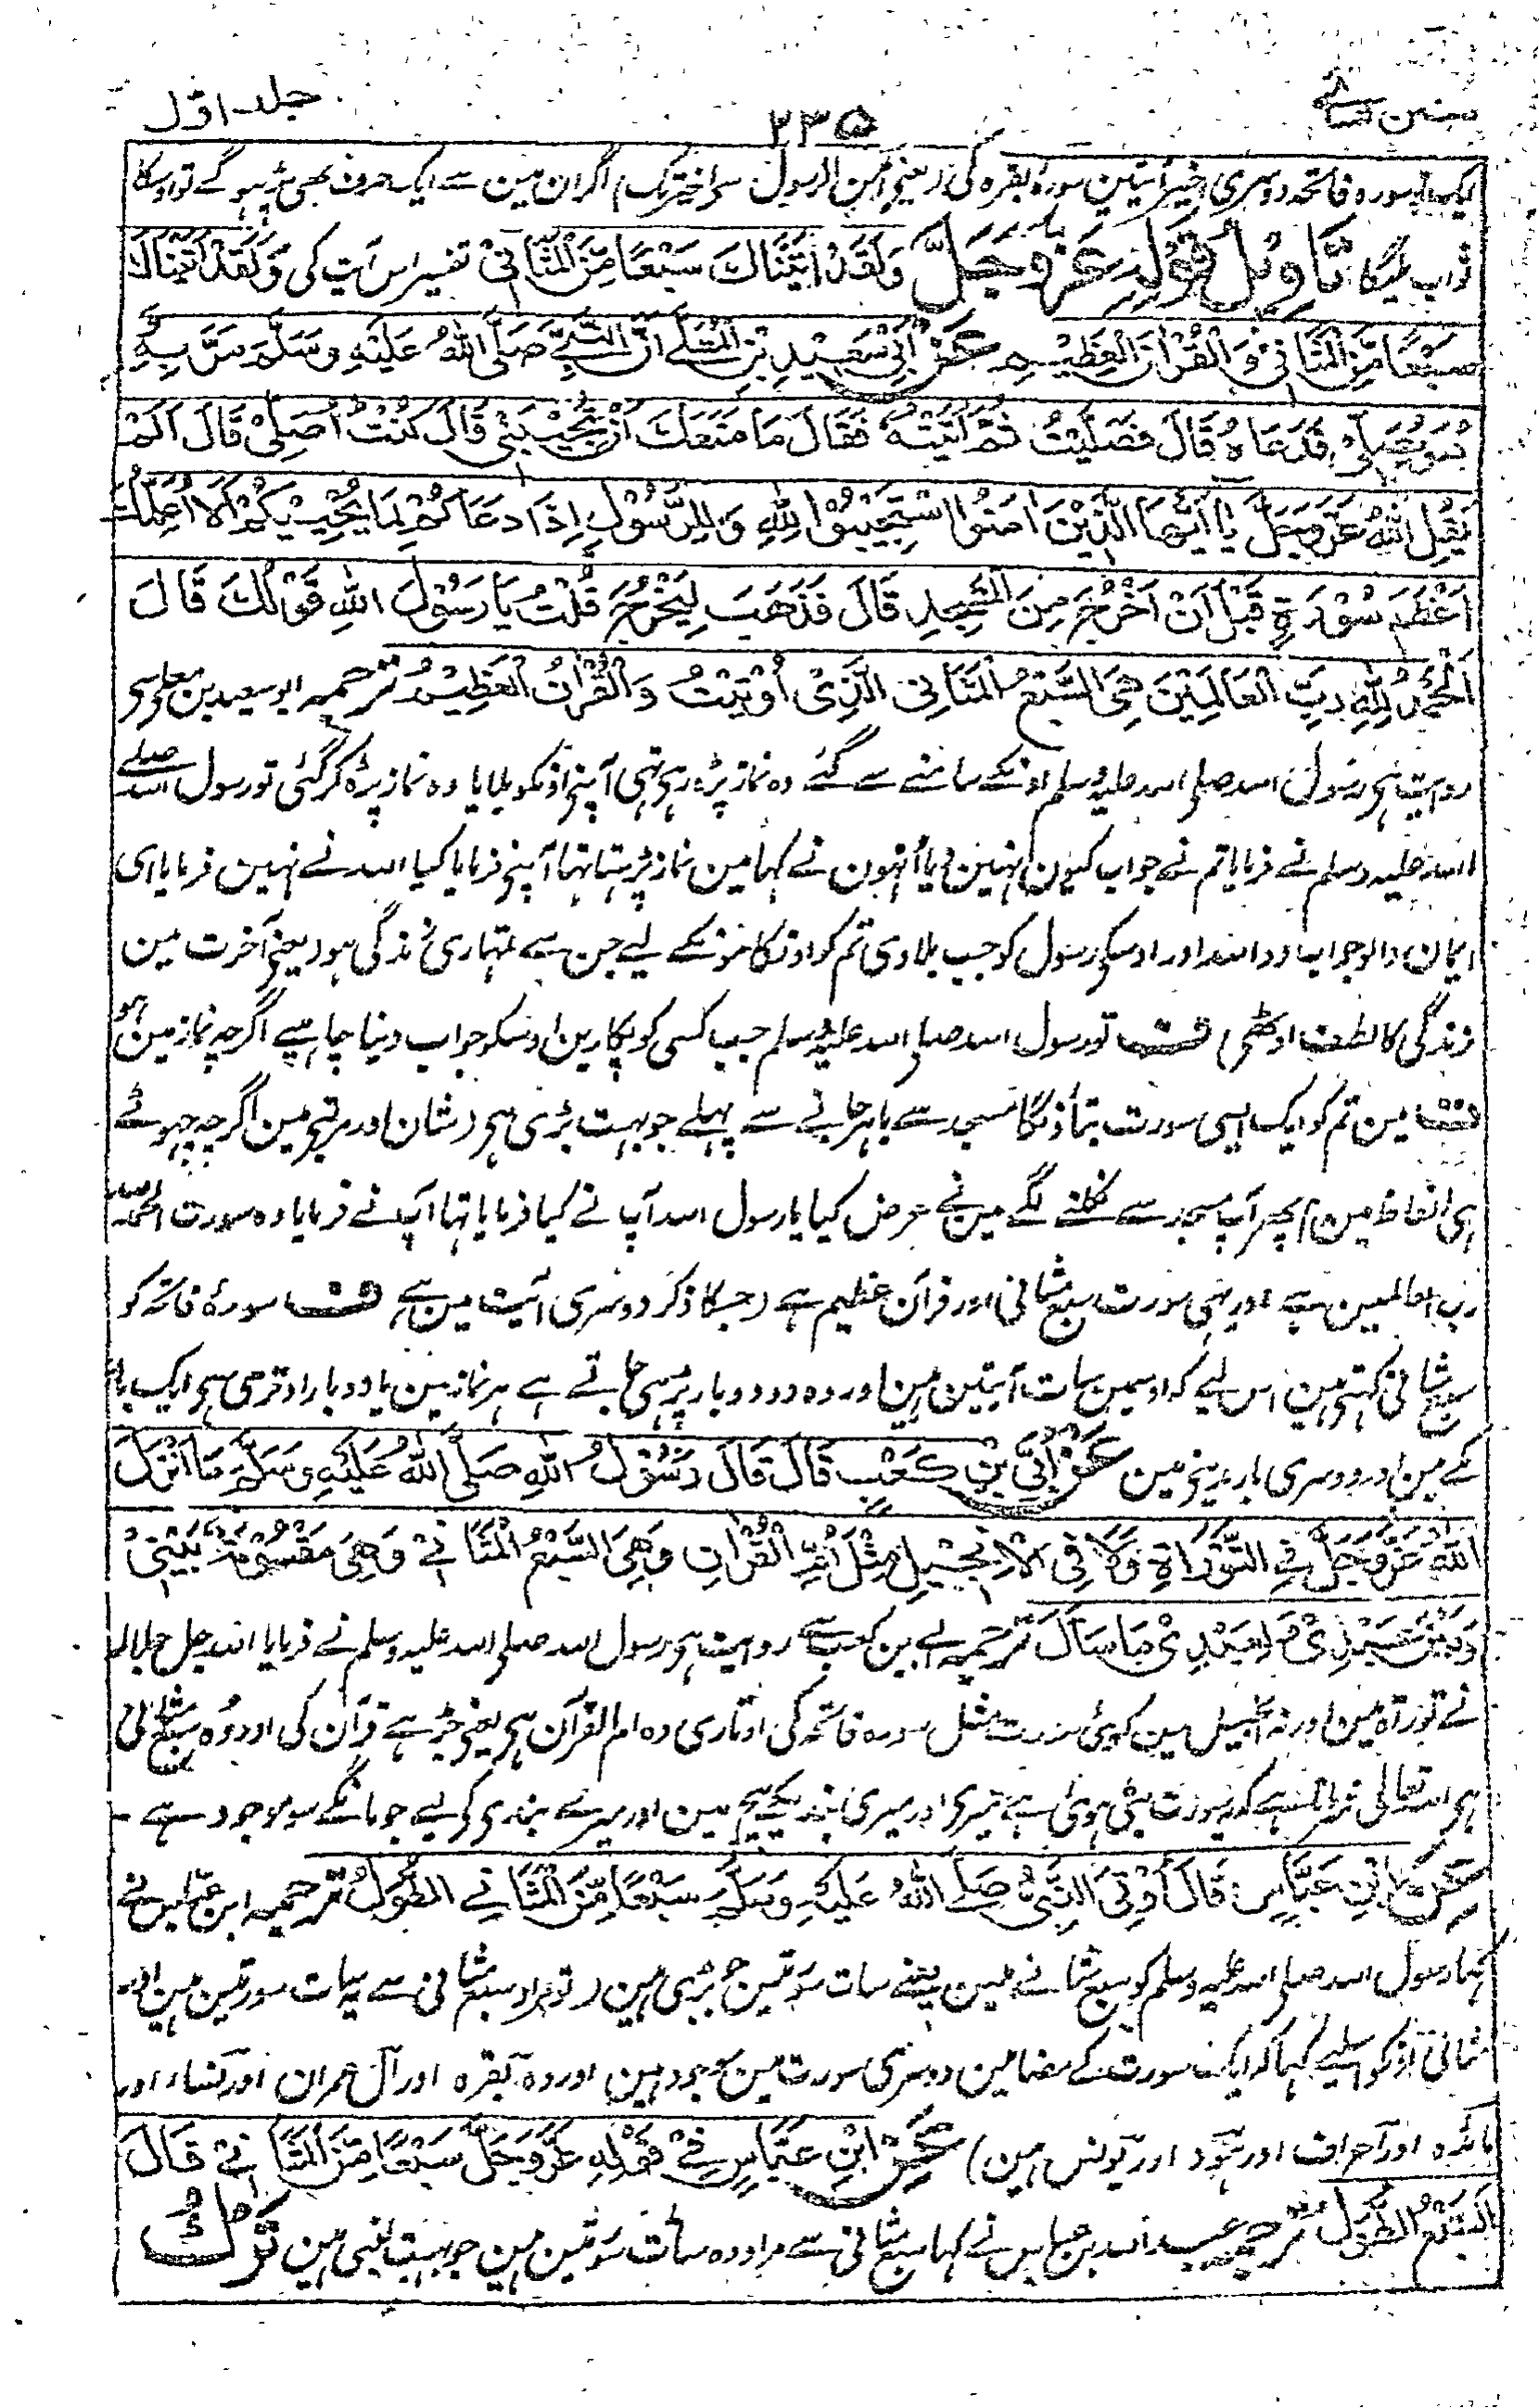 سنن نسائے
۲۳۵
جلد اوّل
ایک تو سورہ فاتحہ دوسری اخیر آیتین سورہ بقرہ کی (یعنے آمن الرسول سے اخیر تک) اگر ان مین سے ایک حرف بھی پڑہو گے تو اوسکا
ثواب ملیگا تَاوِيلُ قَوْلِهِ عَزَّ وَجَلَّ وَلَقَدْ اٰتَيْنَاكَ سَبْعًا مِّنَ الْمَثَانِيْ تفسیر اس آیت کی وَلَقَدْ اٰتَيْنَاكَ
سَبْعًا مِّنَ الْمَثَانِيْ وَالْقُرْاٰنَ الْعَظِيْمَ عَنْ اَبِيْ سَعِيْدِ بْنِ الْمُعَلّٰى اَنَّ النَّبِيَّ صَلَّى اللّٰهُ عَلَيْهِ وَسَلَّمَ مَرَّ بِهِ
وَهُوَ يُصَلِّيْ فَدَعَاهُ قَالَ فَصَلَّيْتُ ثُمَّ اَتَيْتُهُ فَقَالَ مَا مَنَعَكَ اَنْ تُجِيْبَنِيْ قَالَ كُنْتُ اُصَلِّيْ قَالَ اَلَمْ
يَقُلِ اللّٰهُ عَزَّ وَجَلَّ يَا اَيُّهَا الَّذِيْنَ اٰمَنُوا اسْتَجِيْبُوْا لِلّٰهِ وَلِلرَّسُوْلِ اِذَا دَعَاكُمْ لِمَا يُحْيِيْكُمْ اَلَا اُعَلِّمُكَ
اَعْظَمَ سُوْرَةٍ قَبْلَ اَنْ اَخْرُجَ مِنَ الْمَسْجِدِ قَالَ فَذَهَبَ لِيَخْرُجَ قُلْتُ يَا رَسُوْلَ اللّٰهِ قَوْلَكَ قَالَ
اَلْحَمْدُ لِلّٰهِ رَبِّ الْعَالَمِيْنَ هِيَ السَّبْعُ الْمَثَانِي الَّذِيْ اُوْتِيْتُ وَالْقُرْاٰنُ الْعَظِيْمُ ترجمہ ابو سعید بن معلی سے
روایت ہے رسول اللہ صلی اللہ علیہ وسلم اونکے سامنے سے گئے وہ نماز پڑہ رہے تہی آپنے اونکو بلایا وہ نماز پڑہ کر گئی تو رسول اللہ صلے
اللہ علیہ وسلم نے فرمایا تم نے جواب کیون نہین دیا اُنہون نے کہا مین نماز پڑہتا تہا آپنے فرمایا کیا اللہ نے نہین فرمایا ای
ایمان والو جواب دو اللہ اور اوسکے رسول کو جب بلاوی تم کو اون کامون کے لیے جن سے تمہاری زندگی ہو (یعنے آخرت مین
زندگی کا لطف اوٹھے) ف تو رسول اللہ صلی اللہ علیہ وسلم جب کسی کو پکارین اوسکو جواب دینا چاہیے اگرچہ نماز مین ہو
ف مین تم کو ایک ایسی سورت بتاؤنگا مسجد سے باہر جانے سے پہلے جو بہت بڑی ہے (شان اور مرتبے مین اگرچہ چہوٹے
ہی الفاظ مین) پھر آپ مسجد سے نکلنے لگے مین نے عرض کیا یا رسول اللہ آپ نے کیا فرمایا تہا آپ نے فرمایا وہ سورت الحمد للہ
رب العالمین ہے اور یہی سورت سبع مثانی اور قرآن عظیم ہے (جسکا ذکر دوسری آیت مین ہے) ف سورۂ فاتحہ کو
سبع مثانی کہتے ہین اس لیے کہ اوسمین سات آیتین ہین اور وہ دو دو بار پڑہی جاتے ہے ہر نماز مین یا دو بار اوتری ہے ایک بار
مکے مین اور دوسری بار مدینے مین عَنْ اُبَيِّ بْنِ كَعْبٍ قَالَ قَالَ رَسُوْلُ اللّٰهِ صَلَّى اللّٰهُ عَلَيْهِ وَسَلَّمَ مَا اَنْزَلَ
اللّٰهُ عَزَّ وَجَلَّ فِي التَّوْرَاةِ وَلَا فِي الْاِنْجِيْلِ مِثْلَ اُمِّ الْقُرْاٰنِ وَهِيَ السَّبْعُ الْمَثَانِيْ وَهِيَ مَقْسُوْمَةٌ بَيْنِيْ
وَبَيْنَ عَبْدِيْ وَلِعَبْدِيْ مَا سَاَلَ ترجمہ ابے بن کعب سے روایت ہے رسول اللہ صلی اللہ علیہ وسلم نے فرمایا اللہ جل جلالہ
نے توراۃ مین اور نہ انجیل مین کوئی سورت مثل سورہ فاتحہ کی اوتاری وہ ام القرآن ہے یعنے جڑ ہے قرآن کی اور وُہ سبع مثانی
ہے اللہ تعالی فرماتا ہے کہ یہ سورت بٹی ہوئی ہے میری اور میری بندیکے بیچ مین اور میرے بندی کو لیے جو مانگے سو موجود ہے -
عَنِ ابْنِ عَبَّاسٍ قَالَ اُوْتِيَ النَّبِيُّ صَلَّى اللّٰهُ عَلَيْهِ وَسَلَّمَ سَبْعًا مِّنَ الْمَثَانِيْ الطُّوَلُ ترجمہ ابن عباس نے
کہا رسول اللہ صلی اللہ علیہ وسلم کو سبع مثانے ملین یعنے سات سورتین جو بڑی ہین (تو مراد سبع مثانی سے یہ سات سورتین ہین اور
مثانی اونکو اسلیے کہا کہ ایک سورت کے مضامین دوسری سورت مین موجود ہین اور وہ بقرہ اور آل عمران اور نساء اور
مائدہ اور اعراف اور ہود اور یونس ہین) عَنِ ابْنِ عَبَّاسٍ فِيْ قَوْلِهِ عَزَّ وَجَلَّ سَبْعًا مِّنَ الْمَثَانِيْ قَالَ
اَلسَّبْعُ الطُّوَلُ ترجمہ عبد اللہ بن عباس نے کہا سبع مثانی سے مراد وہ سات سورتین ہین جو بہت لنبی ہین تَرْكُ